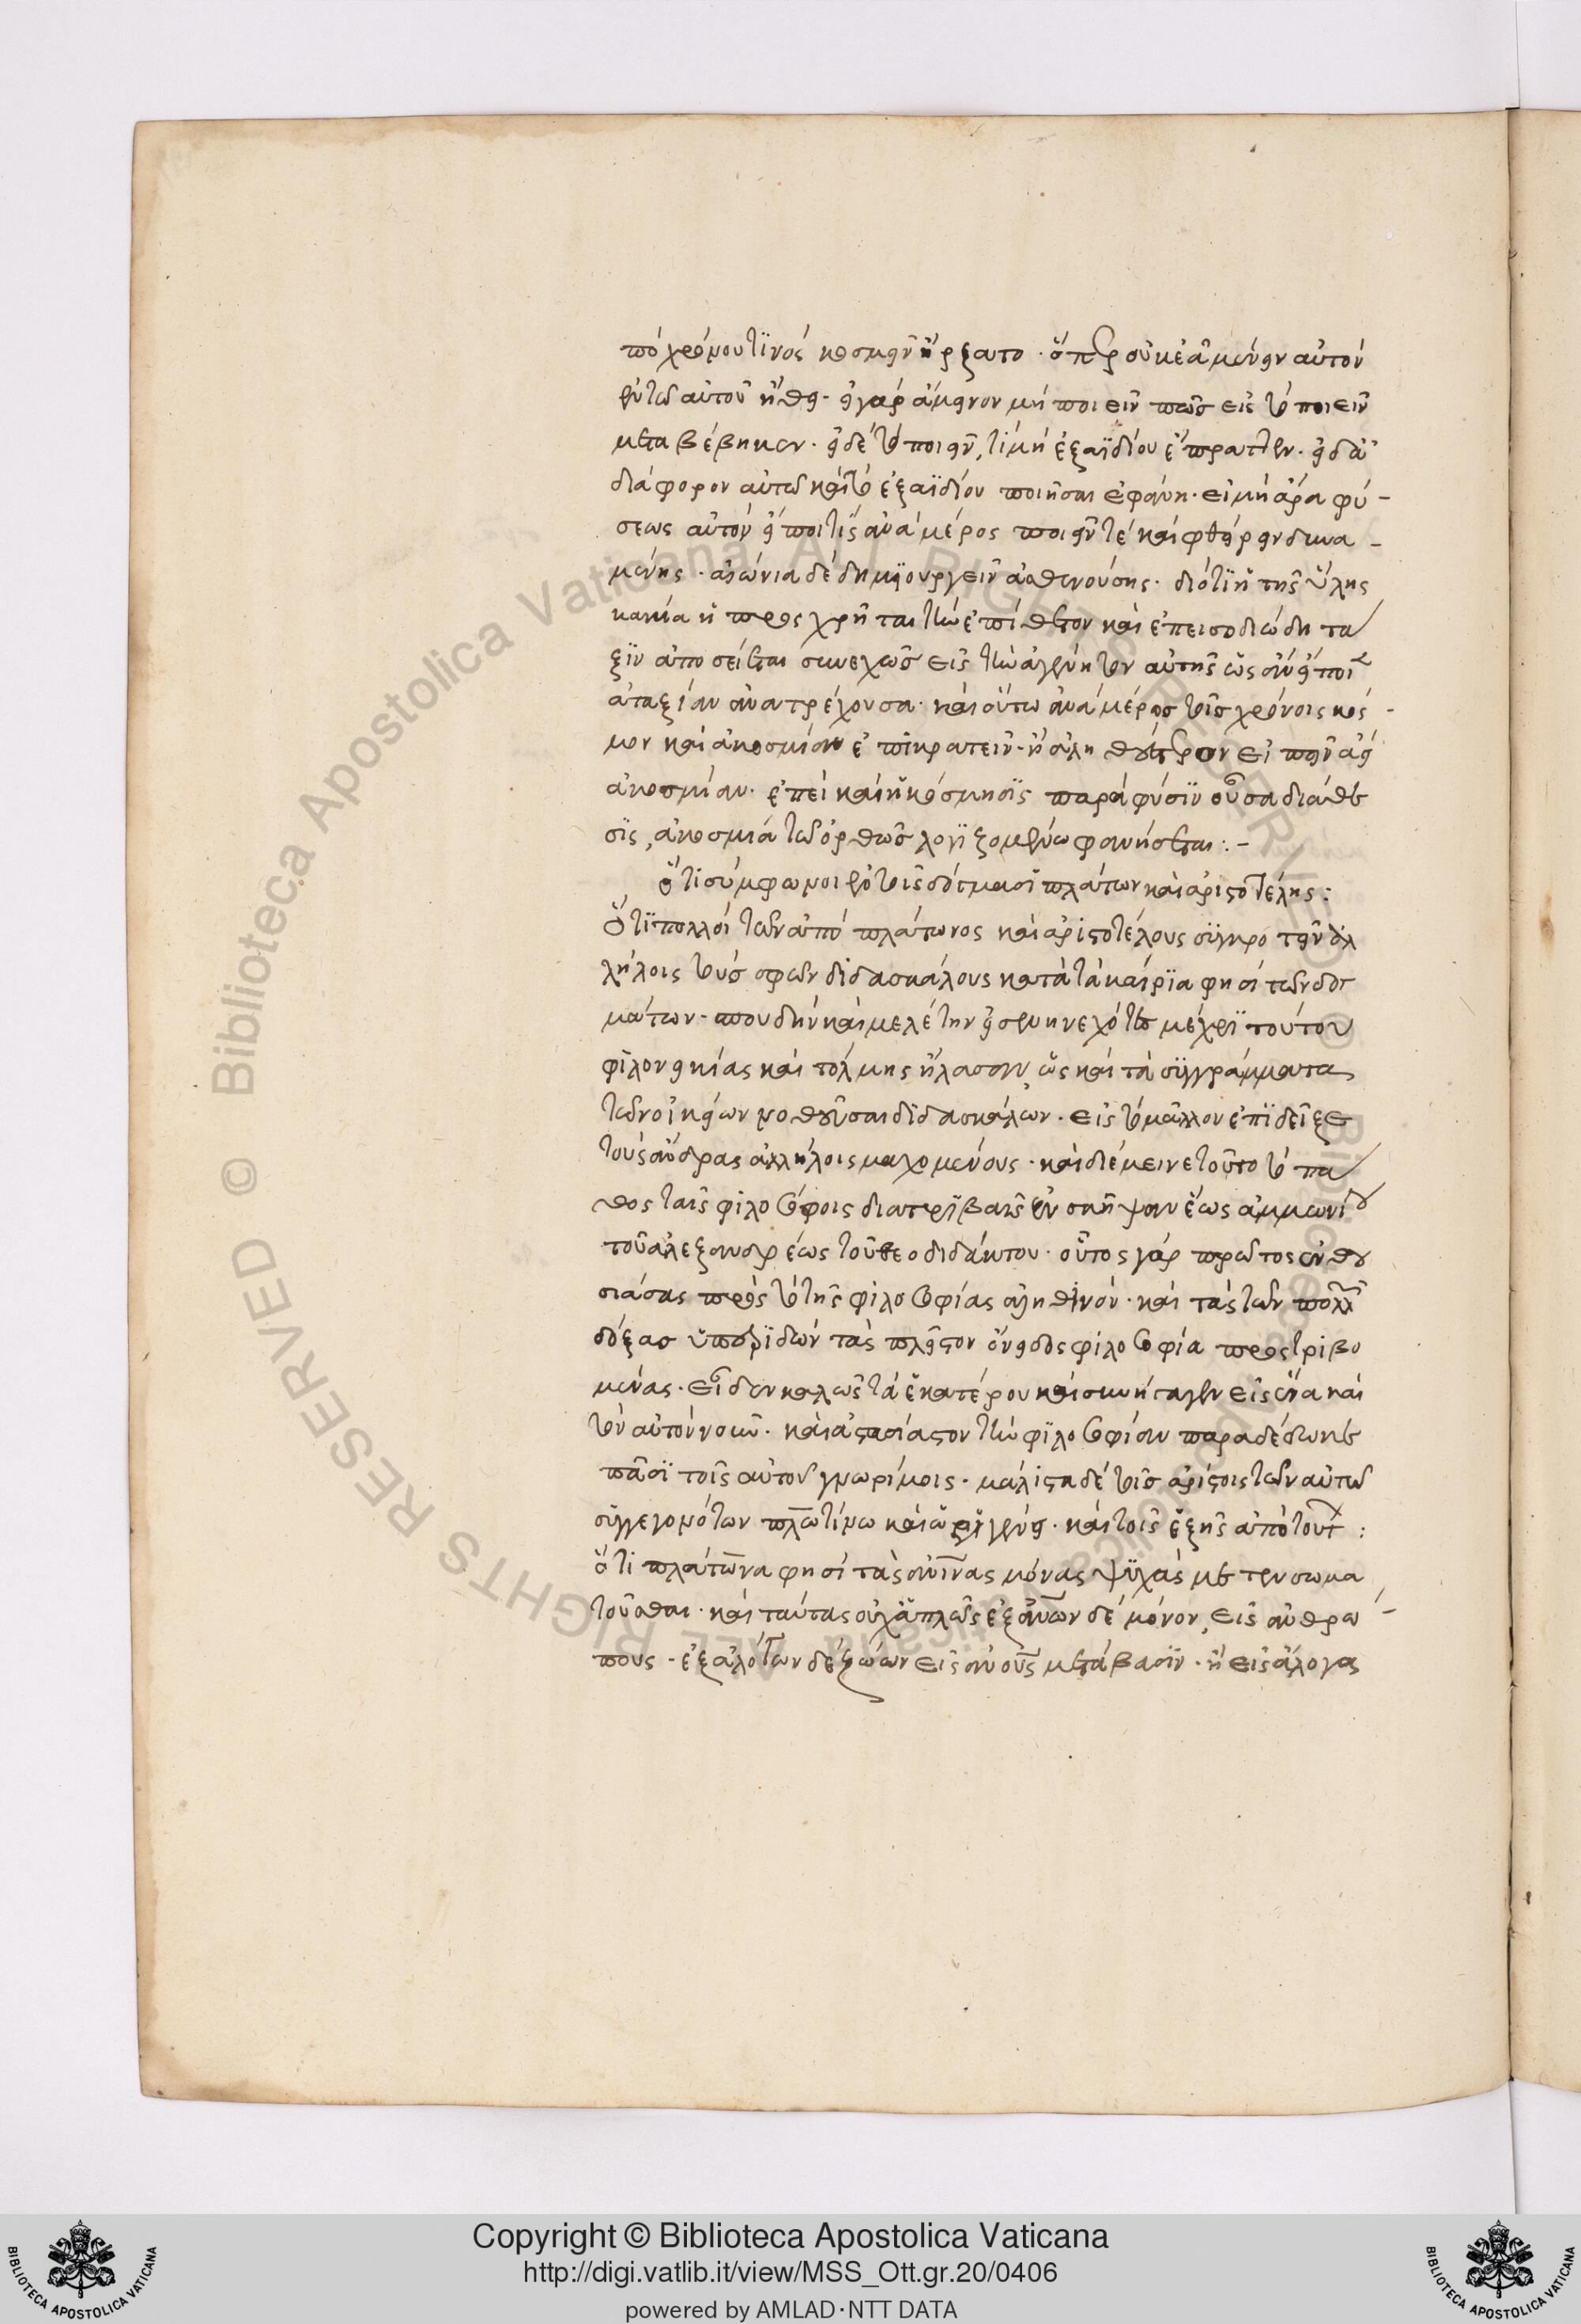 πὸ χρόνου τινὸς κοσμεῖν ἤρξατο · ὅπερ οὐκ ἐᾷ μένειν αὐτὸν
ἐν τῶ αὐτοῦ ἤθει · εἰ γὰρ ἄμεινον μὴ ποιεῖν πῶς εἰς τὸ ποιεῖν
μεταβέβηκεν · εἰ δὲ τὸ ποιεῖν, τί μὴ ἐξ αϊδίου ἔπραττεν · εἰ δ' ἀ
διάφορον αὐτῶ καὶ τὸ ἐξ αϊδίου ποιῆσαι ἐφάνη · εἰ μὴ ἄρα φύ-
σεως αὐτὸν εἴποι τὶς ἀνὰ μέρος ποιεῖν τὲ καὶ φθείρειν δυνα-
μένης · αἰώνια δὲ δημιουργεῖν ἀσθενούσης · διότι ἡ τῆς ὕλης
κακία ἡ προσχρῆται τὴν ἐπίθετον καὶ ἐπεισοδιώδη τά
ξιν ἀποσείεται συνεχῶς εἰς τὴν ἀγένητον αὐτῆς ὡς ἂν εἴποι
ἀταξίαν ἀνατρέχουσα · καὶ οὕτω ἀνὰ μέρος τοῖς χρόνοις κόσ-
μον καὶ ἀκοσμίαν ἐπικρατεῖν · ἢ ἀλη θέστερον εἰπεῖν ἀεὶ
ἀκοσμίαν · ἐπεὶ καὶ ἡ κόσμησις παρὰ φύσιν οὖσα διάθε
σις, ἀκοσμία τῶ ὀρθῶς λογιζομένω φανήσεται :-
ὅτι σύμφωνοι ἐν τοῖς δόγμασι πλάτων καὶ ἀριστοτέλης :
Ὅτι πολλοὶ τῶν ἀπὸ πλάτωνος καὶ ἀριστοτέλους συγκροτεῖν ἀλ
λήλοις τοὺς σφῶν διδασκάλους κατὰ τὰ καίρια φησὶ τῶν δογ
μάτων · σπουδὴν καὶ μελέτην εἰσενηνεχότες μέχρι τούτου
φιλονεικίας καὶ τόλμης ἤλασαν, ὡς καὶ τὰ συγγράμματα
τῶν οἰκείων νοθεῦσαι διδασκάλων · εἰς τὸ μᾶλλον ἐπιδεῖξαι
τοὺς ἄνδρας ἀλλήλοις μαχομένους · καὶ διέμεινε τοῦτο τὸ πά
θος ταῖς φιλοσόφοις διατριβαῖς ἐνσκῆψαν ἕως ἀμμωνίου
τοῦ ἀλεξανδρέως τοῦ θεοδιδάκτου · οὗτος γὰρ πρῶτος ἐνθου
σιάσας πρὸς τὸ τῆς φιλοσοφίας ἀληθινόν · καὶ τὰς τῶν πολλῶν
δόξας ὑπεριδὼν τὰς πλεῖστον ὄνειδος φιλοσοφία προστριβο
μένας · εἶδεν καλῶς τὰ ἑκατέρου καὶ συνήγαγεν εἰς ἕνα καὶ
τὸν αὐτὸν νοῦν · καὶ ἀστασίαστον τὴν φιλοσοφίαν παραδέδωκε
πᾶσι τοῖς αὐτοῦ γνωρίμοις · μάλιστα δὲ τοῖς ἀρίστοις τῶν αὐτῶ
συγγεγονότων πλωτίνω καὶ ὠριγένει · καὶ τοῖς ἑξῆς ἀπὸ τούτων :
ὅτι πλάτωνα φησὶ τὰς ἀνίνας μόνας ψυχὰς μετενσωμα
τοῦσθαι · καὶ ταύτας οὐχ ἁπλῶς ἐξ ἀνων δὲ μόνον, εἰς ἀνθρώ-
πους · ἐξ ἀλόγων δὲ ζώων εἰς ἀνους μετάβασιν · ἢ εἰς ἄλογας
Copyright © Biblioteca Apostolica Vaticana
http://digi.vatlib.it/view/MSS_Ott.gr.20/0406
powered by AMLAD·NTT DATA
BIBLIOTECA APOSTOLICA VATICANA
BIBLIOTECA APOSTOLICA VATICANA
© Biblioteca Apostolica Vaticana ALL RIGHTS RESERVED
© Biblioteca Apostolica Vaticana ALL RIGHTS RESERVED